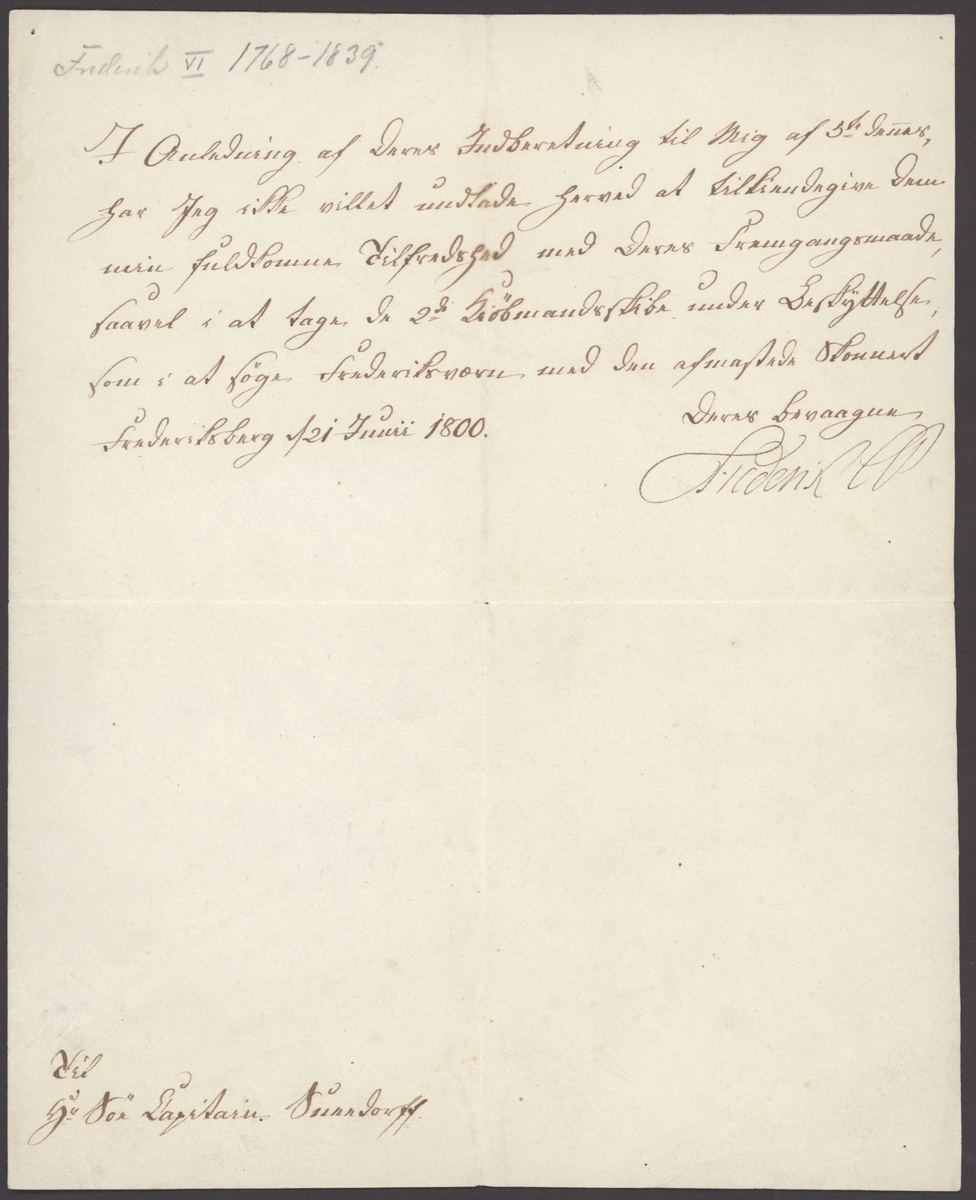 Frederik VI 1768-1839.
I Anledning af Deres Indberetning til Mig af 5te dennes,
har Jeg ikke villet undlade herved at tilkiendegive Dem
min fuldkomne Tilfredshed med Deres Fremgangsmaade,
saavel i at tage de 2de Kiöbmandsskibe under Beskyttelse,
som i at söge Frederiksværn med den afmastede Skonnert
Frederiksberg d/21 Junii 1800.
Deres bevaagne
Frederik
Til
Hr Söe Capitain